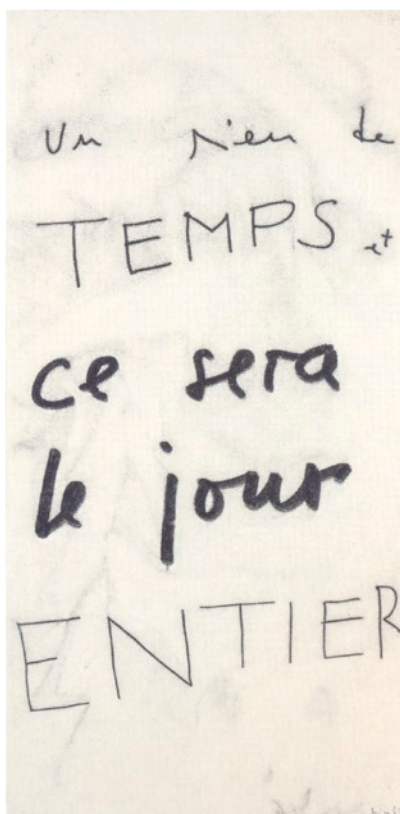 un rien de
TEMPS et
ce sera
le jour
ENTIER